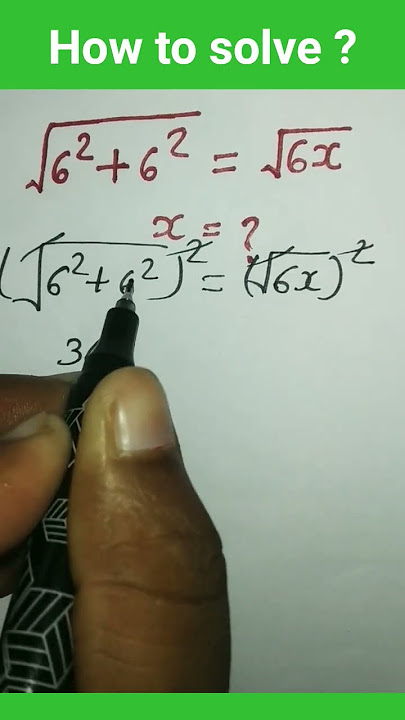 How to solve ?
√6²+6² = √6x
x = ?
(√6²+6²)² = (√6x)²
3